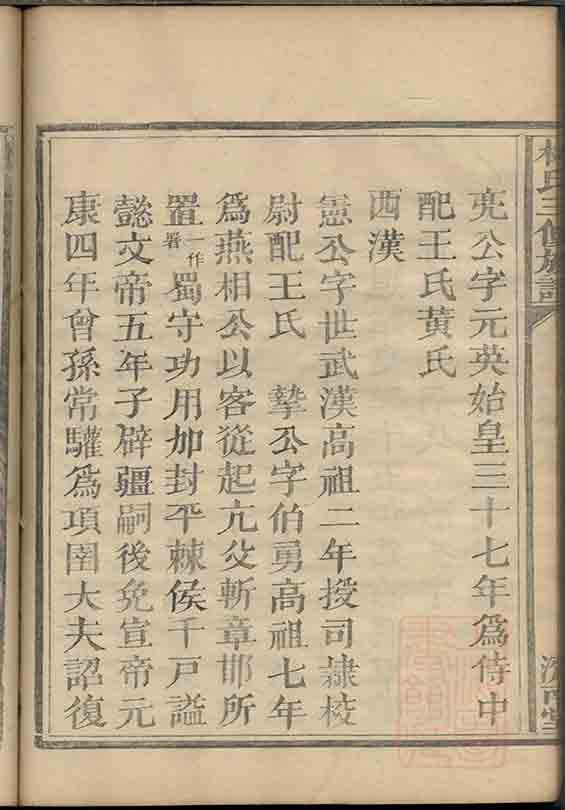 亮公字元英始皇三十七年爲侍中
配王氏黃氏
西漢
憲公字世武漢高祖二年授司隸校
尉配王氏　摯公字伯勇高祖七年
爲燕相公以客從起亢父斬章邯所
置一作署蜀守功用加封平棘侯千戸謚
懿文帝五年子辟疆嗣後免宣帝元
康四年曾孫常驩爲項圉大夫詔復
林氏三修族譜
濟南堂